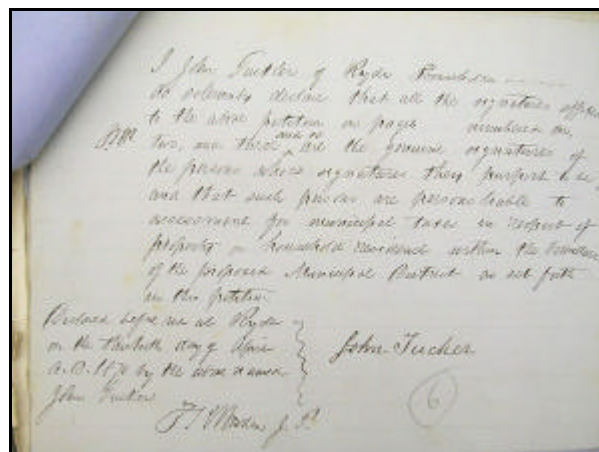 I John Tucker of Ryde
do solemnly declare that all the signatures
to the above petition on pages numbered one,
two, and three are the genuine signatures of
the persons whose signatures they purport to be
and that such persons are persons liable to
assessment for municipal taxes in respect of
property or household residence within the
of the proposed Municipal District as set forth
in this petition
Declared before me at Ryde
on the day of
A.D. 1870 by the above named
John Tucker
John Tucker
J. P.
6